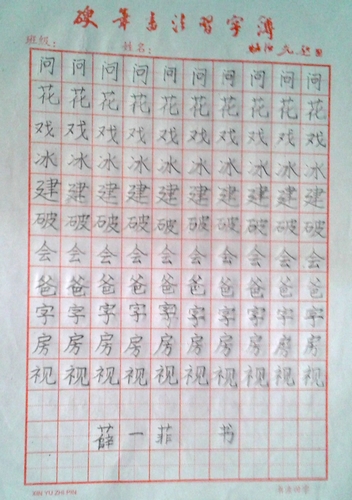 硬笔书法习字簿
班级： 姓名：
问问问问问问问问问问
花花花花花花花花花花
戏戏戏戏戏戏戏戏戏戏
冰冰冰冰冰冰冰冰冰冰
建建建建建建建建建建
破破破破破破破破破破
会会会会会会会会会会
爸爸爸爸爸爸爸爸爸爸
字字字字字字字字字字
房房房房房房房房房房
视视视视视视视视视视
薛一菲 书
XIN YU ZHI PIN